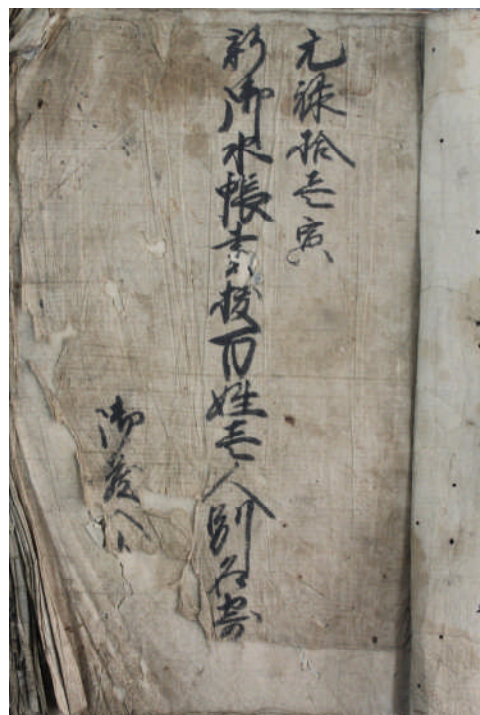 元禄拾壱寅
新御水帳書抜百姓壱人別名寄
御蔵入